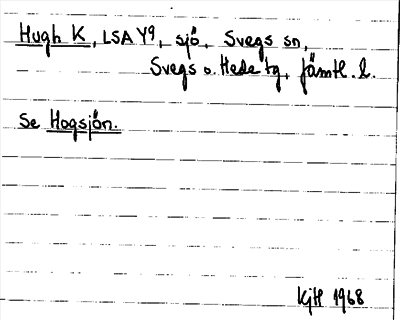 Hugh K, LSA Y9, sjö, Svegs sn,
Svegs o. Hede tg, Jämtl. l.
Se Hogsjön.
KjH 1968